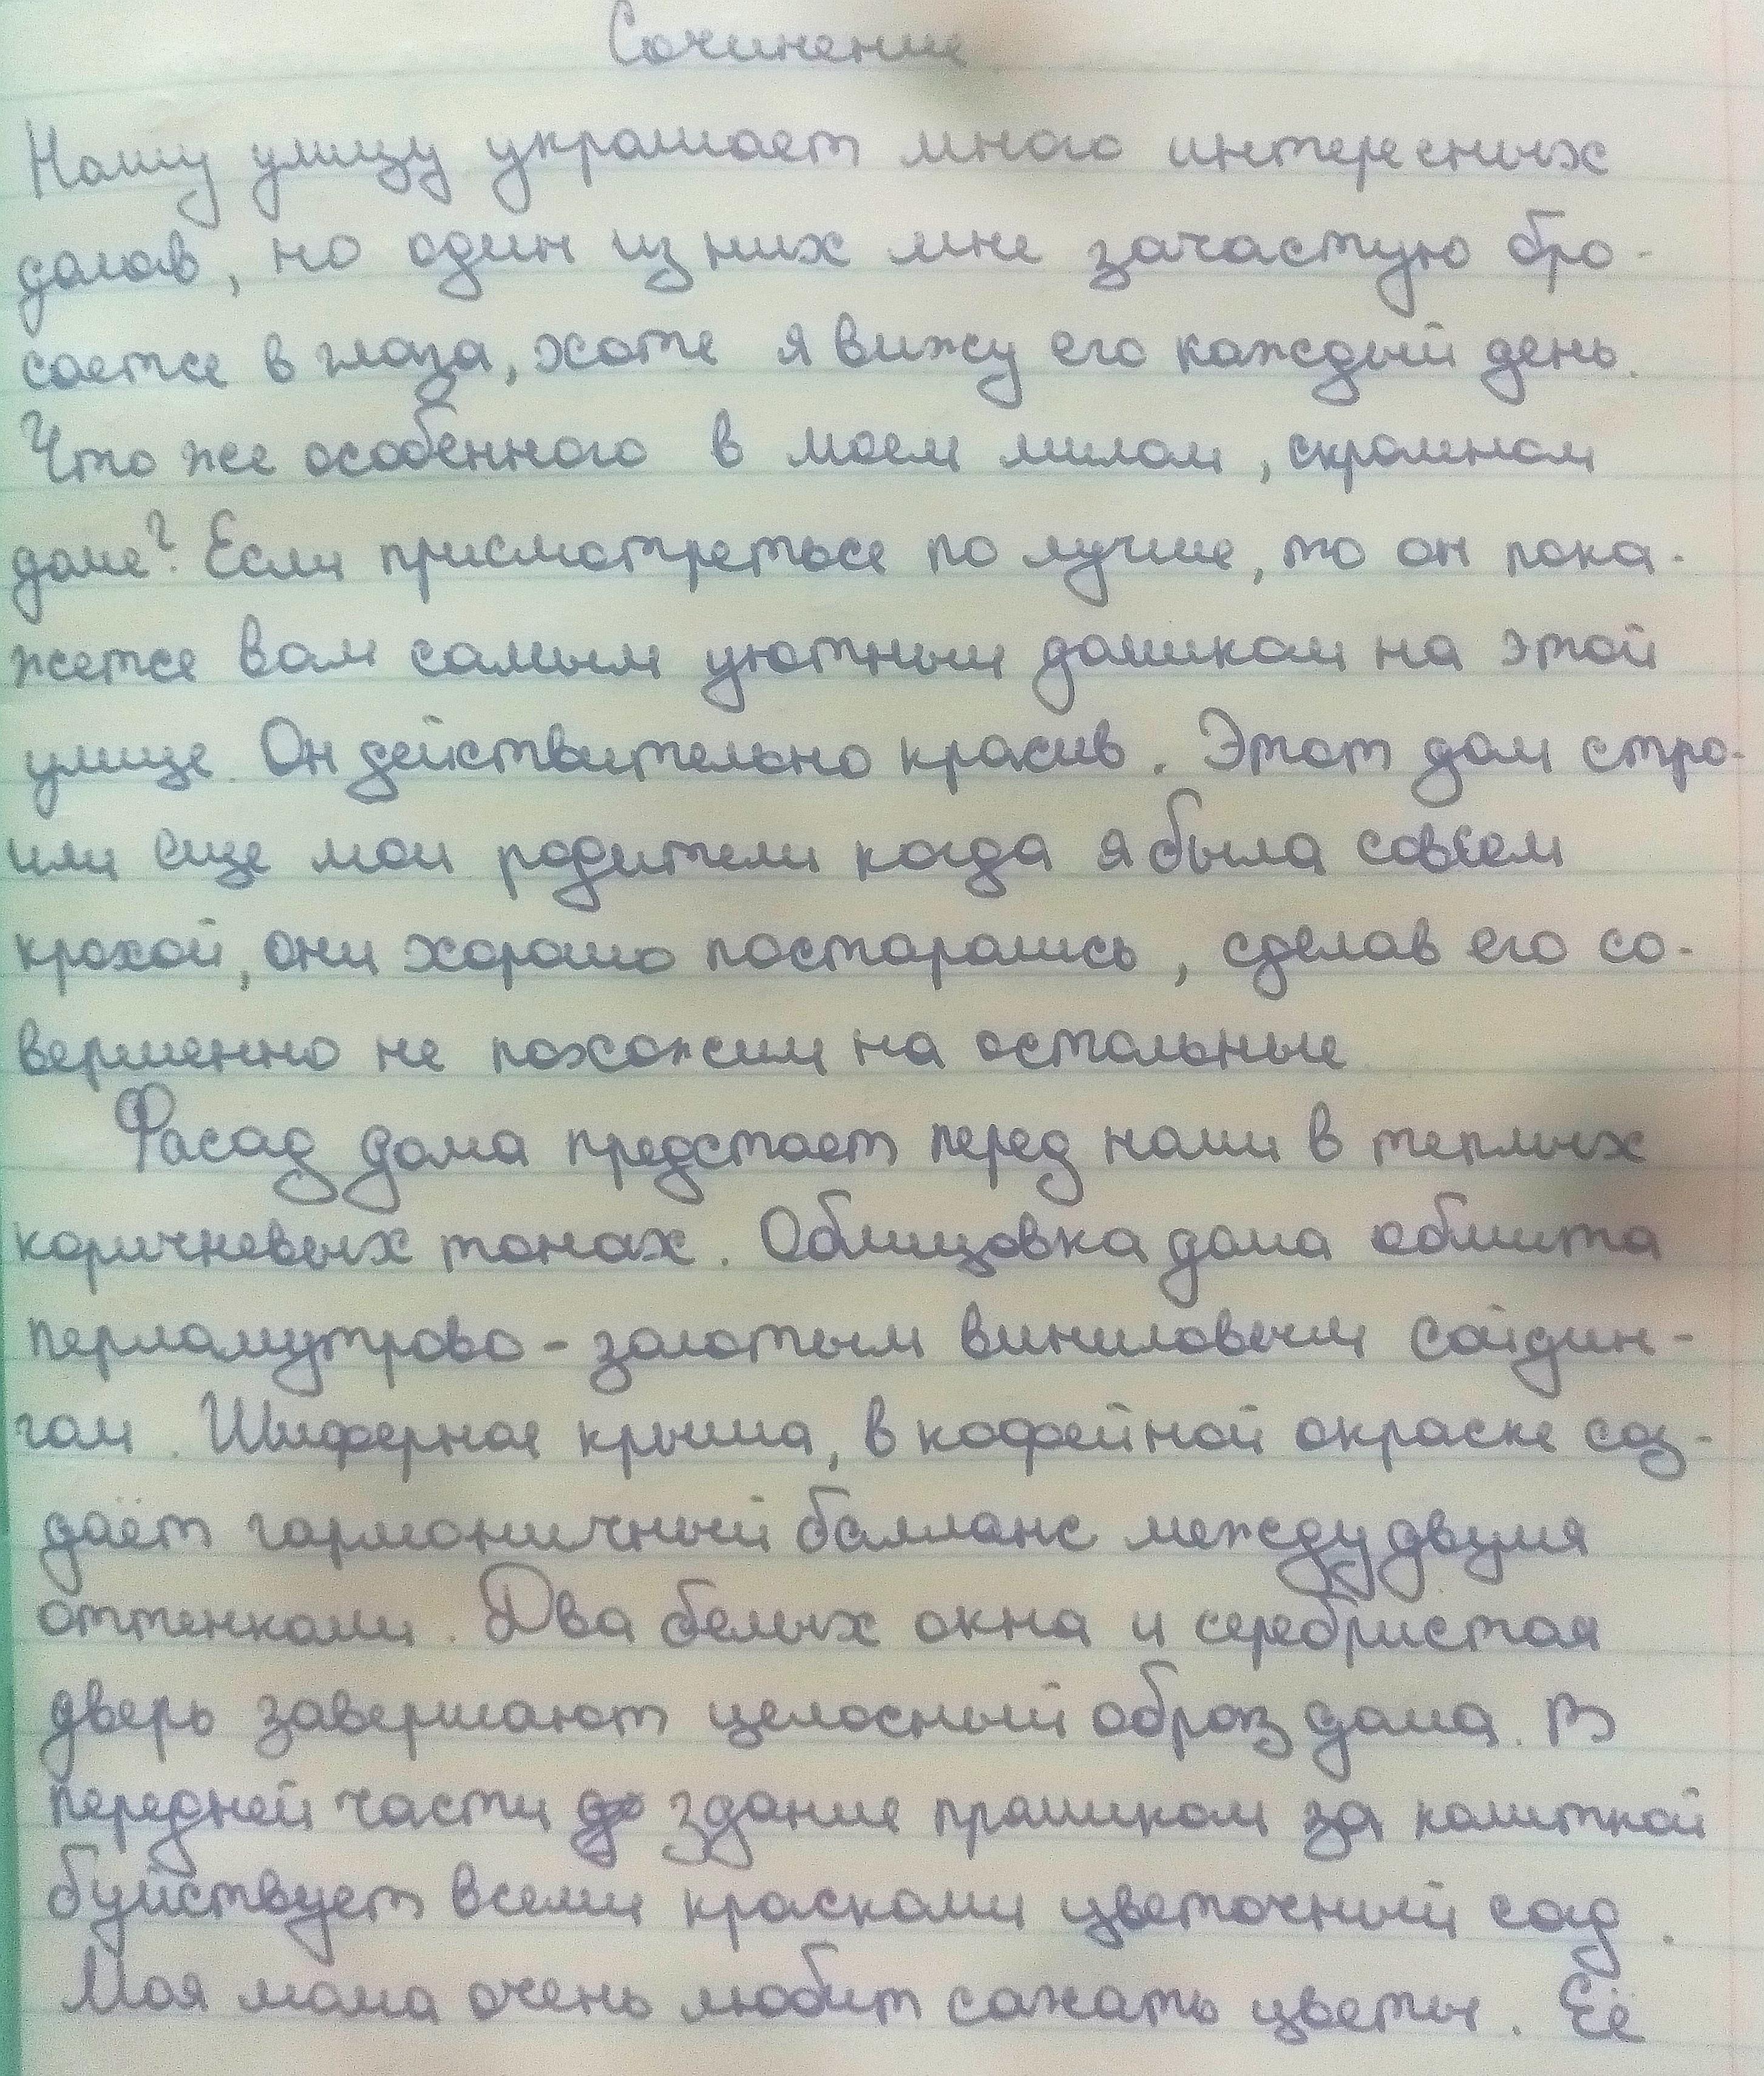 Сочинение
Нашу улицу украшает много интересных
домов, но один из них мне зачастую бро-
сается в глаза, хотя я вижу его каждый день.
Что же особенного в моем милом, скромном
доме? Если присмотреться по лучше, то он пока-
жется вам самым уютным домиком на этой
улице. Он действительно красив. Этот дом стро-
или еще мои родители когда я была совсем
крохой, они хорошо постарались, сделав его со-
вершенно не похожим на остальные
Фасад дома предстает перед нами в теплых
коричневых тонах. Облицовка дома обшита
перламутрово-золотым виниловым сайдин-
гом. Шиферная крыша, в кофейной окраске соз-
даёт гармоничный балланс между двумя
оттенками. Два белых окна и серебристая
дверь завершают целосный образ дома. В
передней части здание прямиком за калиткой
буйствует всеми красками цветочный сад.
Моя мама очень любит сажать цветы. Её